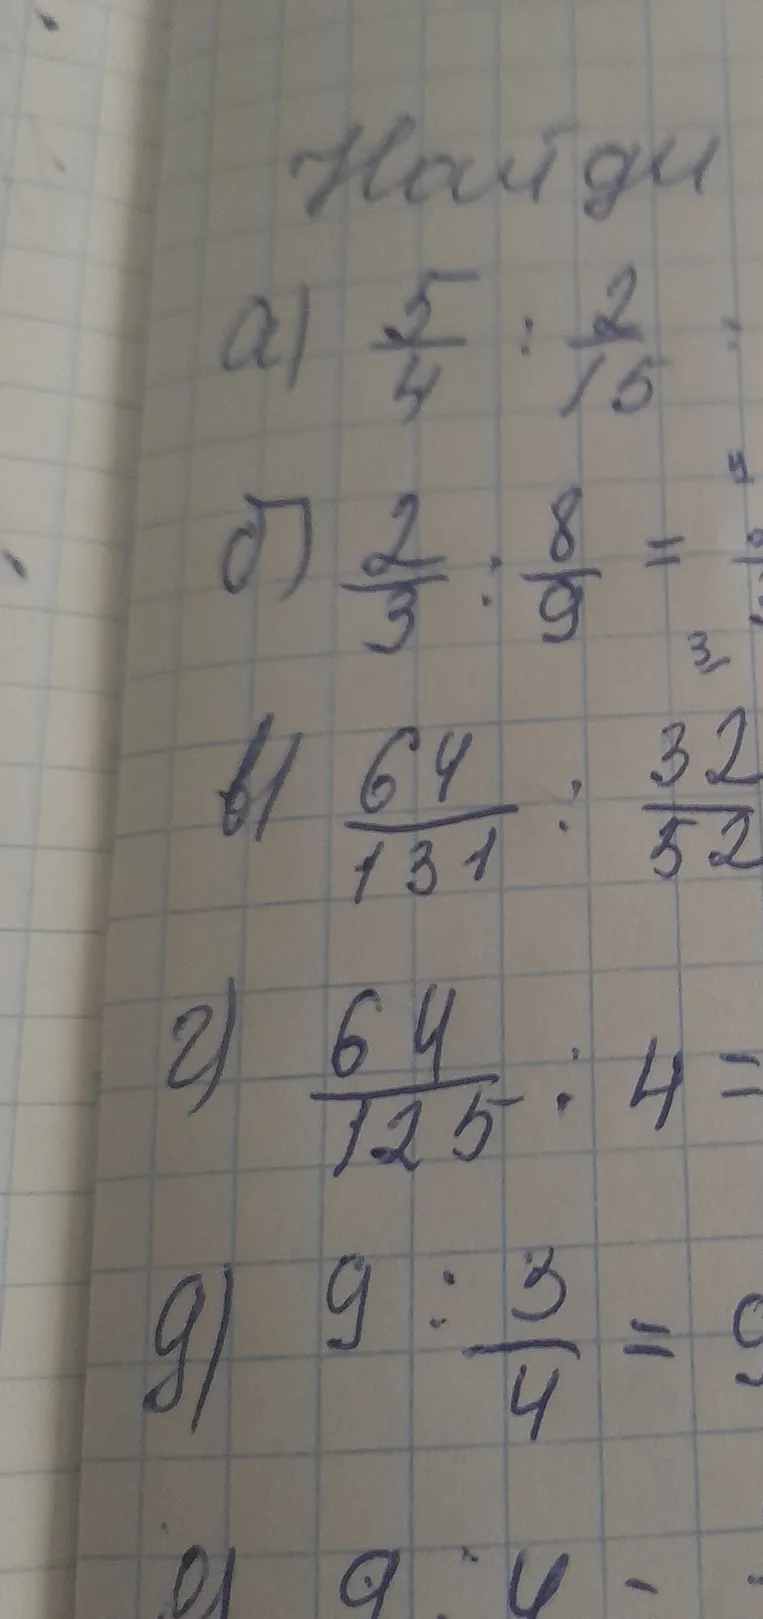 Найди
а) 5/4 : 2/15 =
б) 2/3 : 8/9 =
3
в) 64/131 : 32/52
г) 64/125 : 4 =
д) 9 : 3/4 = 9
е) 9 : 4